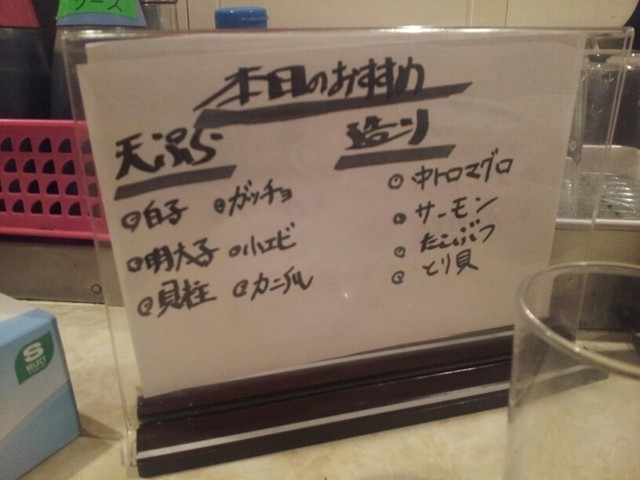 ソース
本日のおすすめ
天ぷら
造り
白子 ガッチョ
明太子 小エビ
貝柱 カニ爪
中トロマグロ
サーモン
たこぶつ
とり貝
S
SELECT